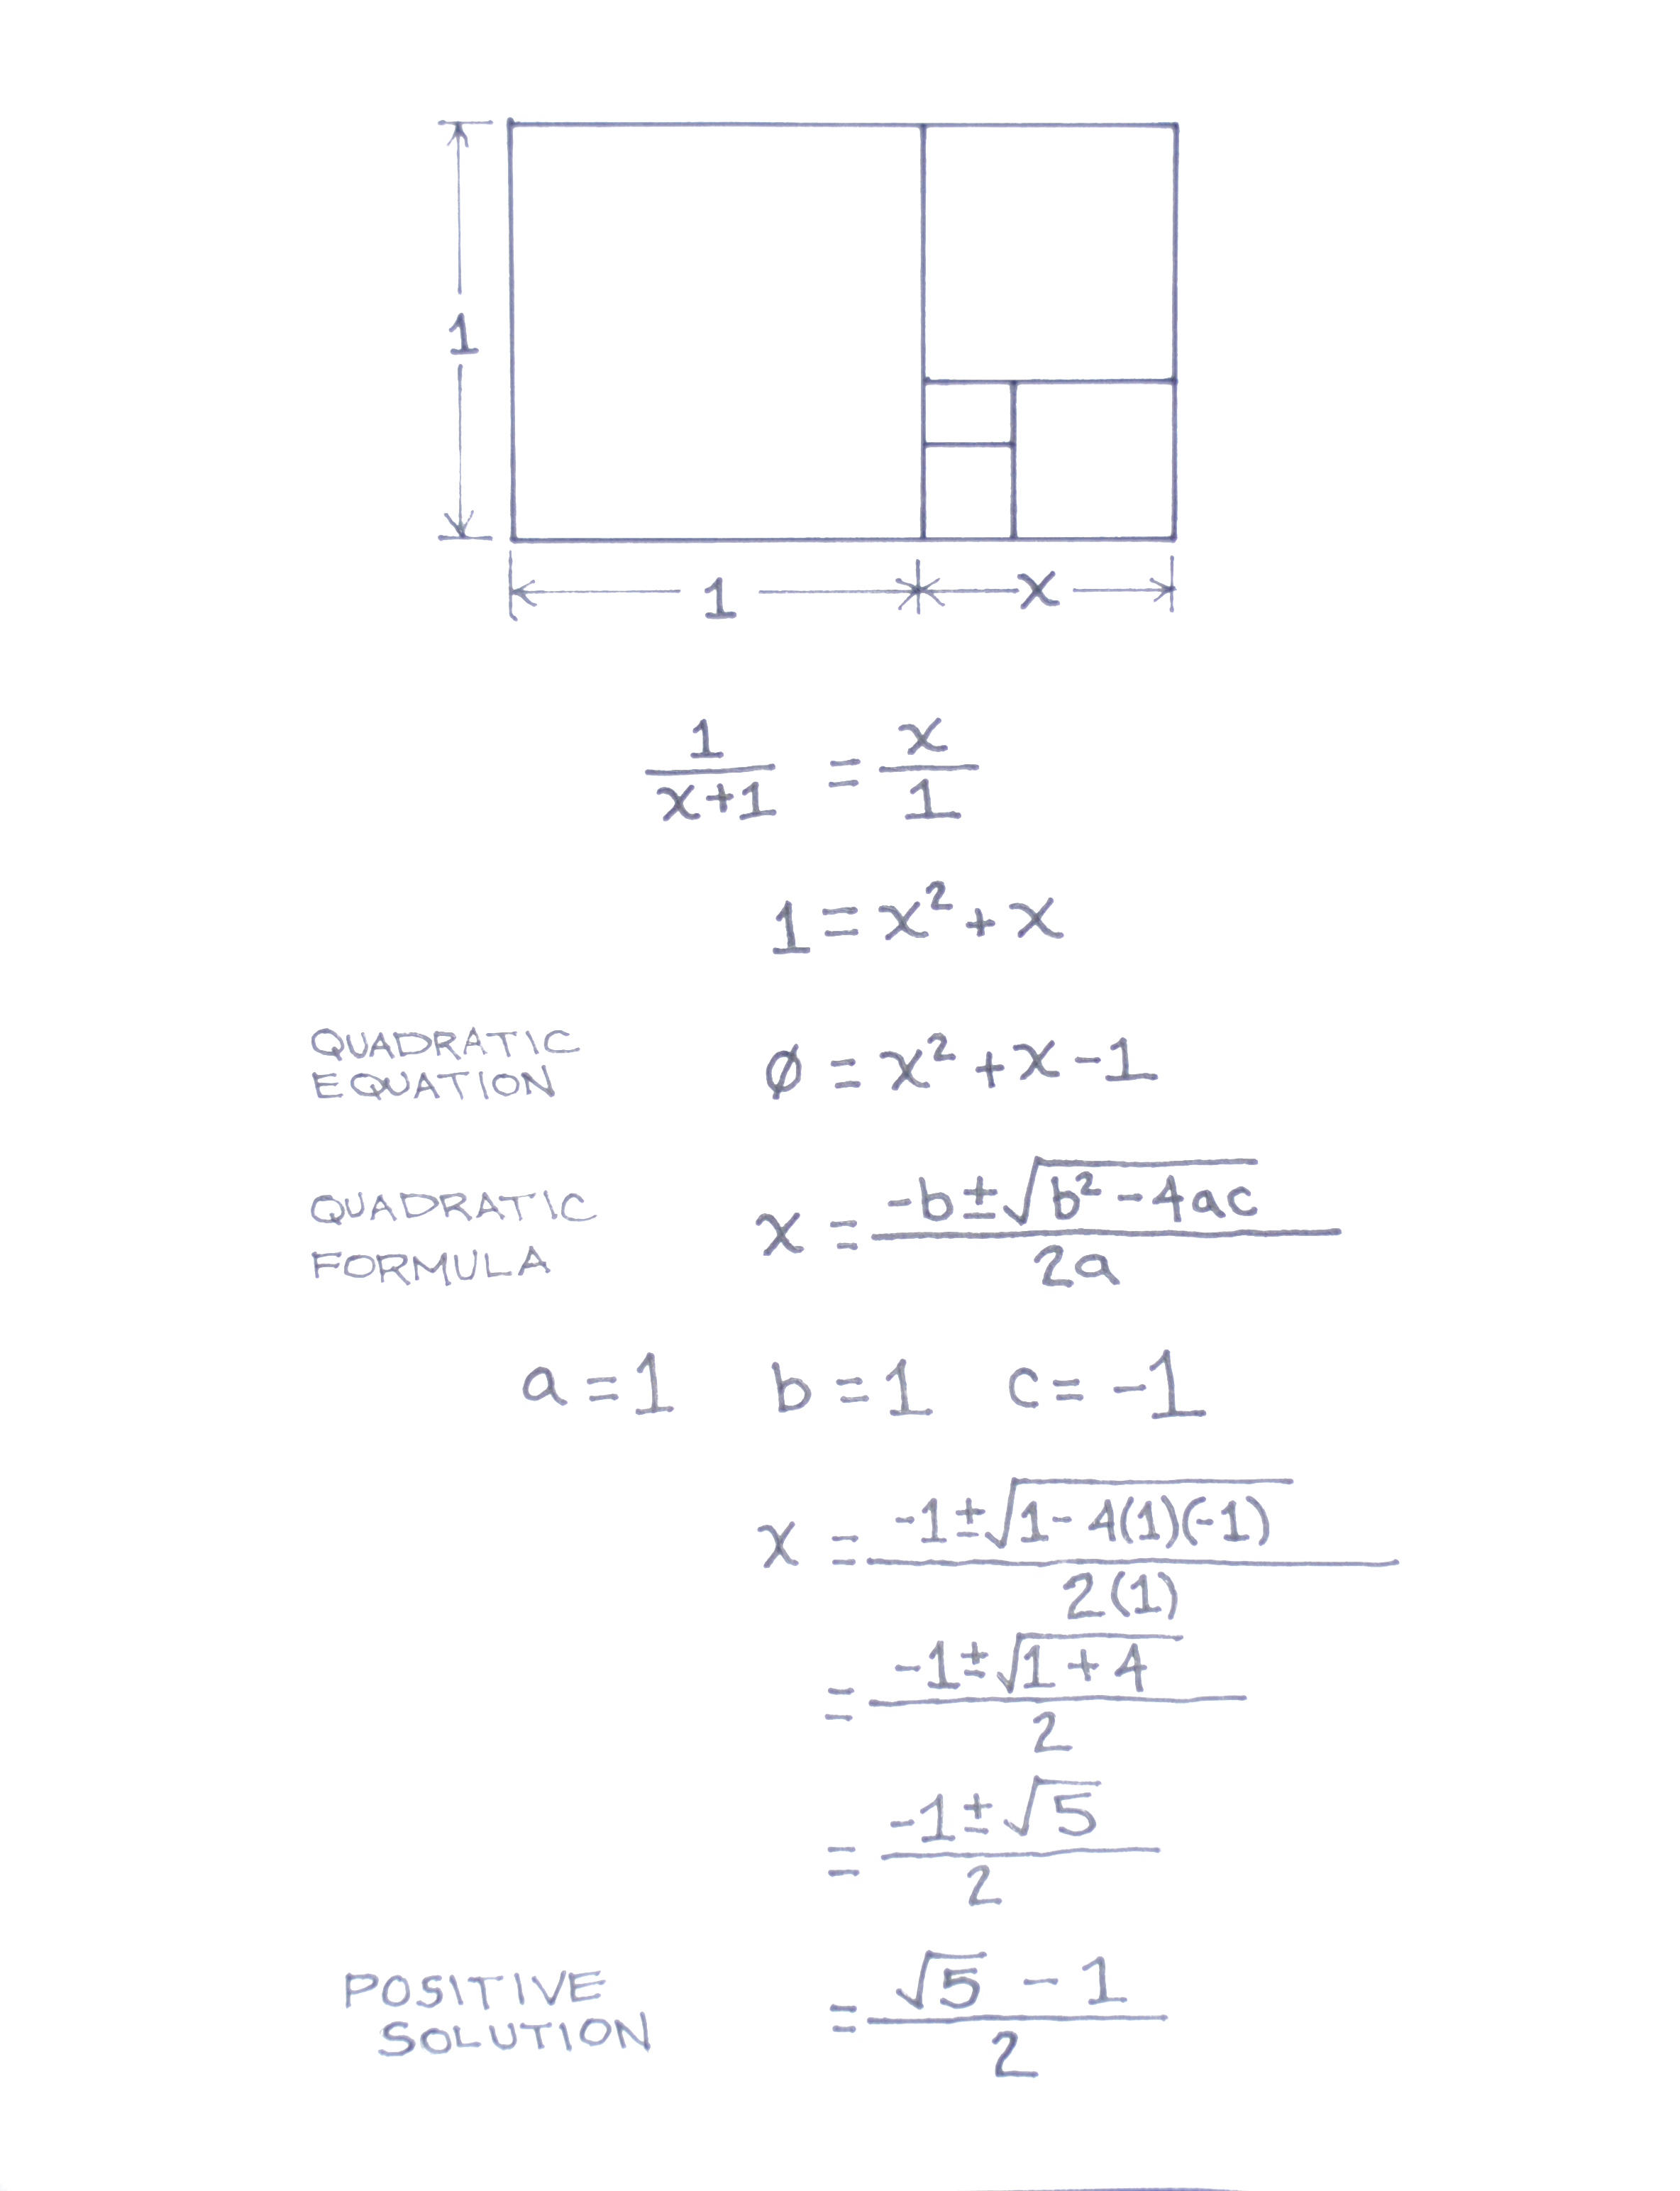 1
1 x
1/(x+1) = x/1
1 = x² + x
QUADRATIC
EQUATION
0 = x² + x - 1
QUADRATIC
FORMULA
x = (-b ± √(b² - 4ac))/(2a)
a = 1 b = 1 c = -1
x = (-1 ± √(1 - 4(1)(-1)))/(2(1))
= (-1 ± √(1 + 4))/2
= (-1 ± √5)/2
POSITIVE
SOLUTION
= (√5 - 1)/2